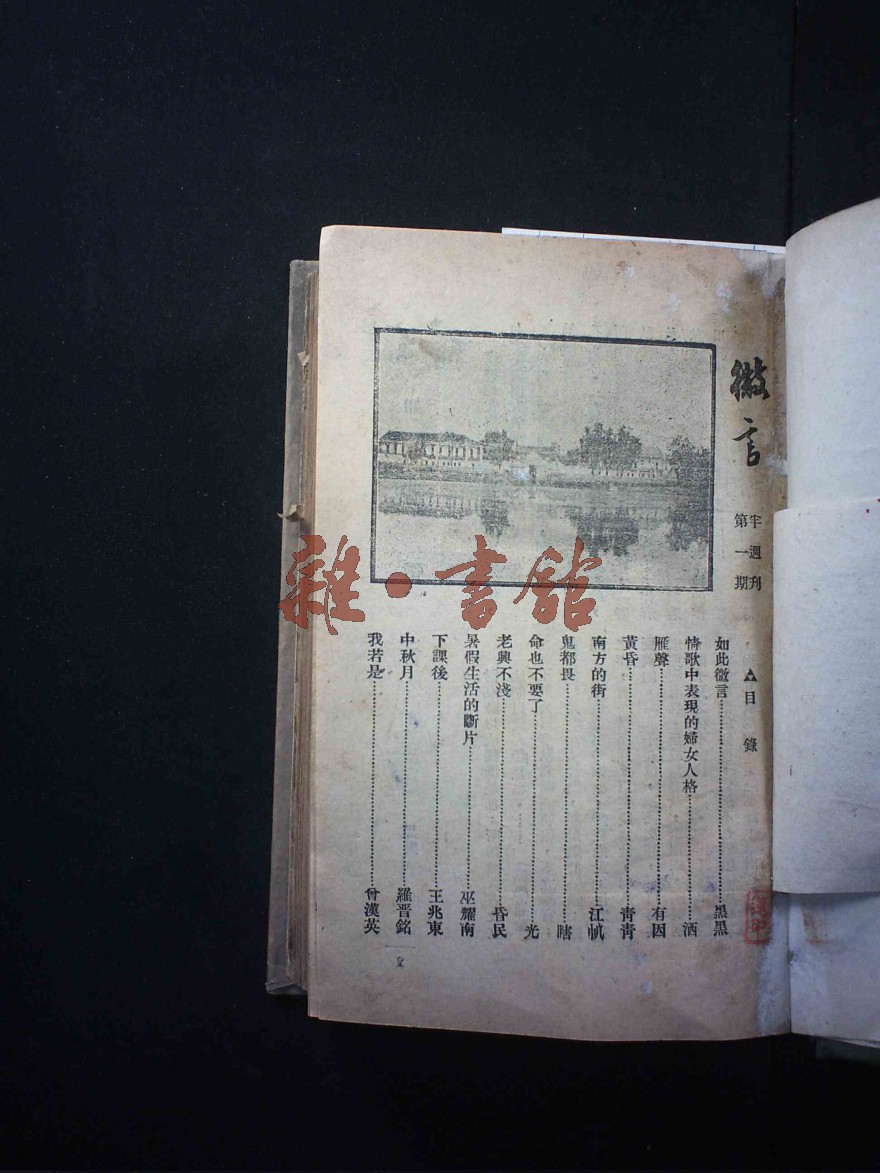 微言
半週刊
第一期
▲目錄
如此微言……黑黑
情歌中表現的婦女人格……洒
雁聲……有因
黃昏……青青
南方的街……江帆
鬼都畏……瞎
命也不要了……光
老興不淺……昏民
暑假生活的斷片……巫耀南
下課後……王兆東
中秋月……羅晋銘
我若是……曾漢英
雜·書館